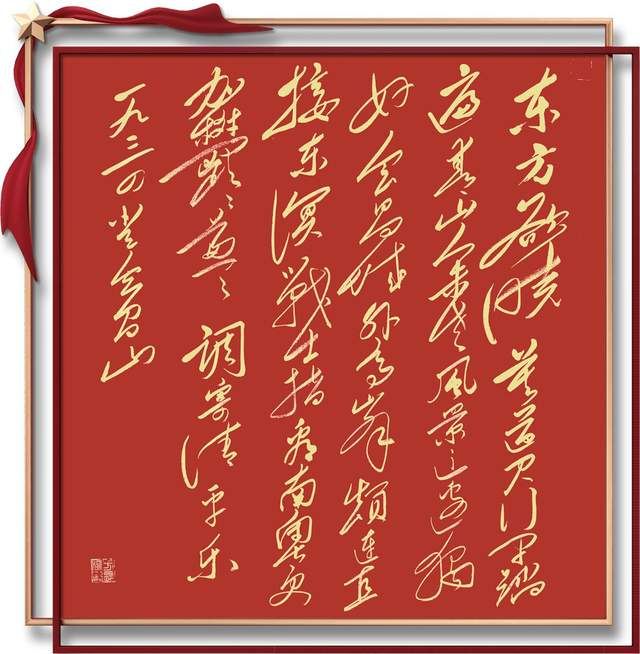 东方欲曉莫道君行早踏
遍青山人未老風景这边独
好会昌城外高峰顛連直
接东溟戰士指看南粵更
加鬱〻葱〻 調寄清平乐
一九三四登会昌山